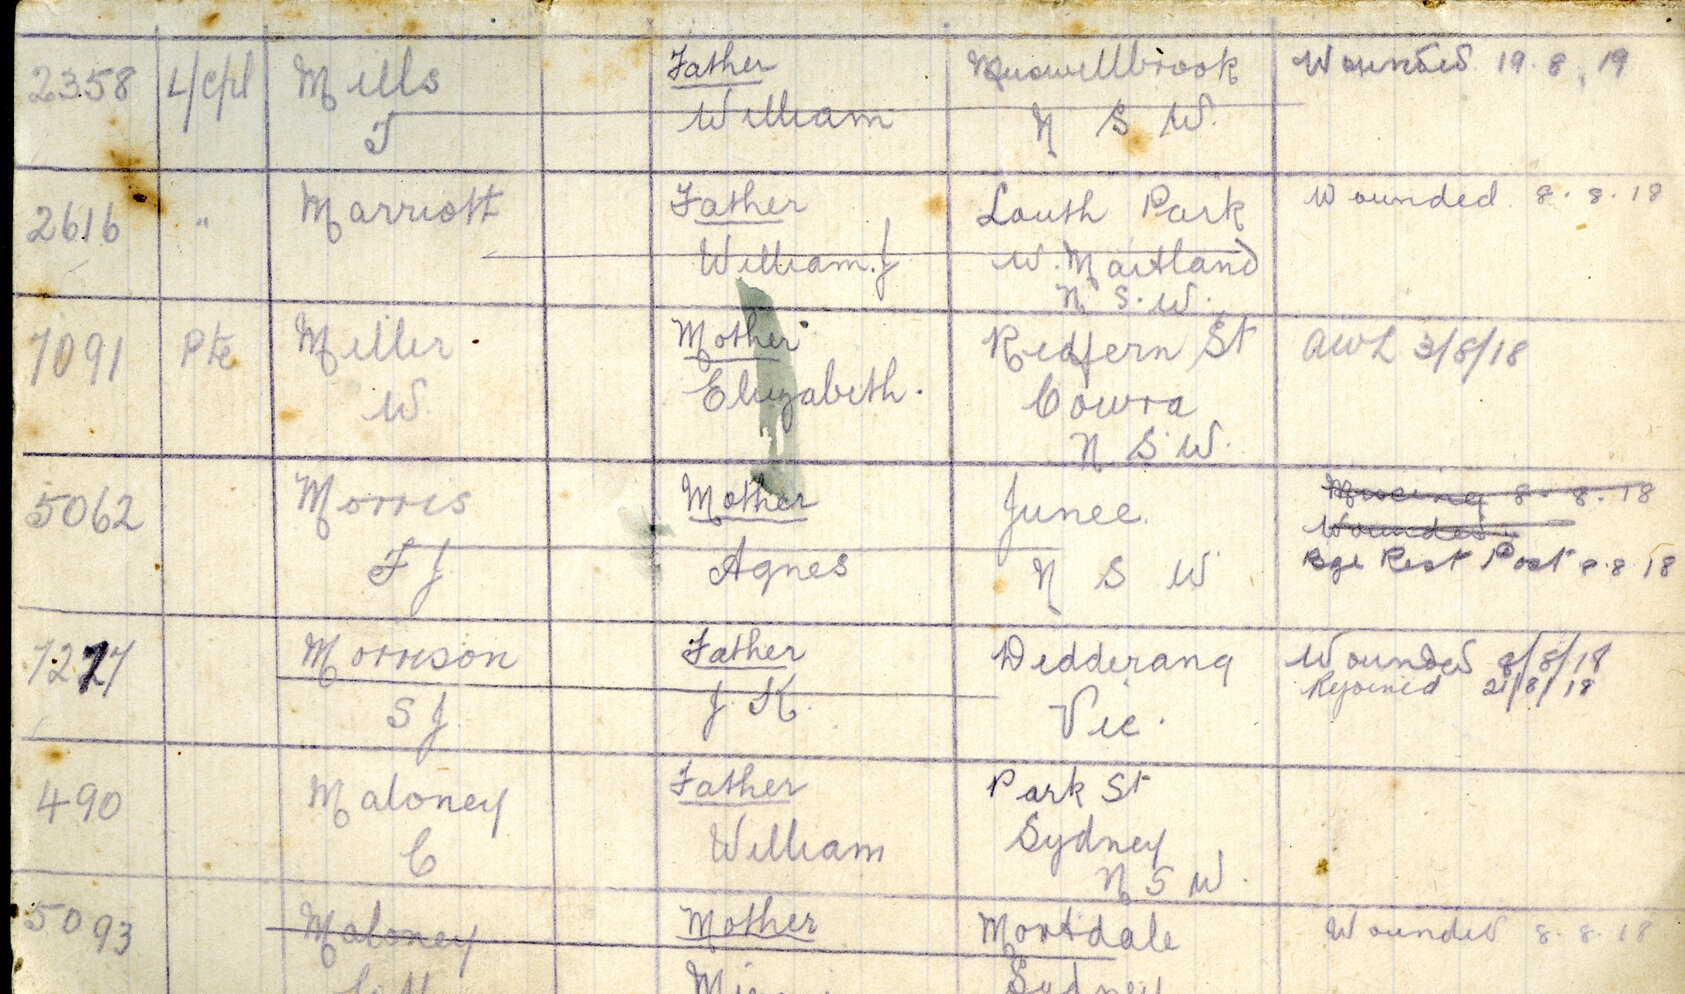 2358 L/Cpl Mills Father Muswellbrook Wounded 19.8.19
T William N S W.
2616 " Marriott Father Louth Park Wounded 8.8.18
William.J W. Maitland
N. S. W.
7091 Pte Miller Mother Redfern St AWL 3/8/18
W. Elizabeth. Cowra
N S. W.
5062 Morris Mother Junee. Missing 8.8.18
Wounded
F J Agnes N S W Bge Rest Post 8.8.18
7277 Morrison Father Dedderang Wounded 8/8/18
Rejoined 21/8/18
S J. J. K. Vic.
490 Maloney Father Park St
C William Sydney
N S W.
5093 Maloney Mother Mortdale Wounded 8.8.18
Sydney